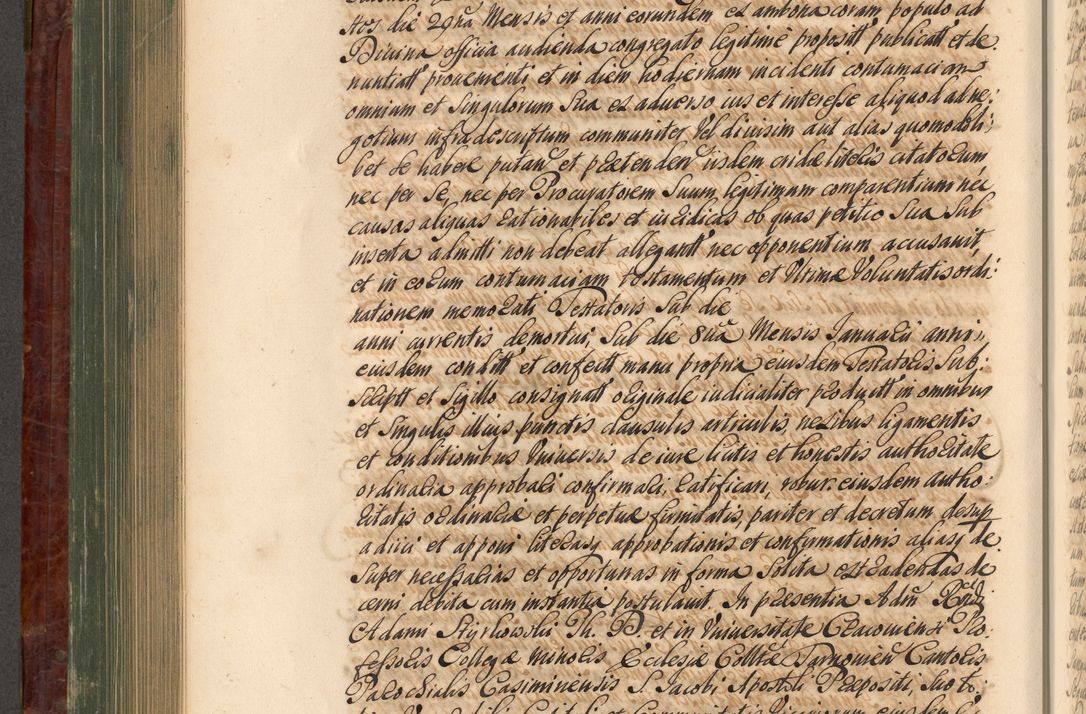 ttos die 29na Mensis et anni eorundem ex ambona coram populo ad
Divina officia audienda congregato legitimè propositt publicatt et de
nuntiatt provenienti et in diem hodiernam incidenti contumaciam
omnium et Singulorum Sua ex adverso ius et interesse aliquod ad ne:
gotium infradescriptum communiter Vel divisim aut alias quomodoli:
bet se habere putan et praetenden iisdem cridae literis citatorum
nec per Se, nec per Procuratorem Suum legitimum comparentium nec
causas aliquas rationabiles et iuridicas ob quas petitio Sua Sub
inserta admitti non debeat allegantt nec opponentium accusavit,
et in eorum contumaciam testamentum et Ultimae Voluntatis ordi:
nationem memorati Testatoris Sub die
anni currentis demortui, Sub die 8va Mensis Januarii anni
eiusdem conditt et confectt manu propria eiusdem Testatoris Sub:
scriptt et Sigillo consignatt originale iudicialiter productt in omnibus
et Singulis illius punctis clausulis articulis nexibus ligamentis
et conditionibus Universis de iure licitis et honestis authoritate
ordinaria approbari confirmari, ratificari, robur eiusdem autho:
ritatis ordinariae et perpetuae firmitatis, pariter et decretum desup
adiici et apponi literasq approbationis et confirmationis aliasq de
Super necessarias et opportunas in forma Solita extradendas de
cerni debita cum instantia postulavit. In praesentia Adm Rndi
Adami Styrkowski Th. D. et in Universitate Cracovien Pro:
fessoris Collegae Minoris, Ecclesiae Colltae Tarnovien Cantoris
Parochialis Casimiriensis S. Jacobi Apostoli Praepositi, Suo to: